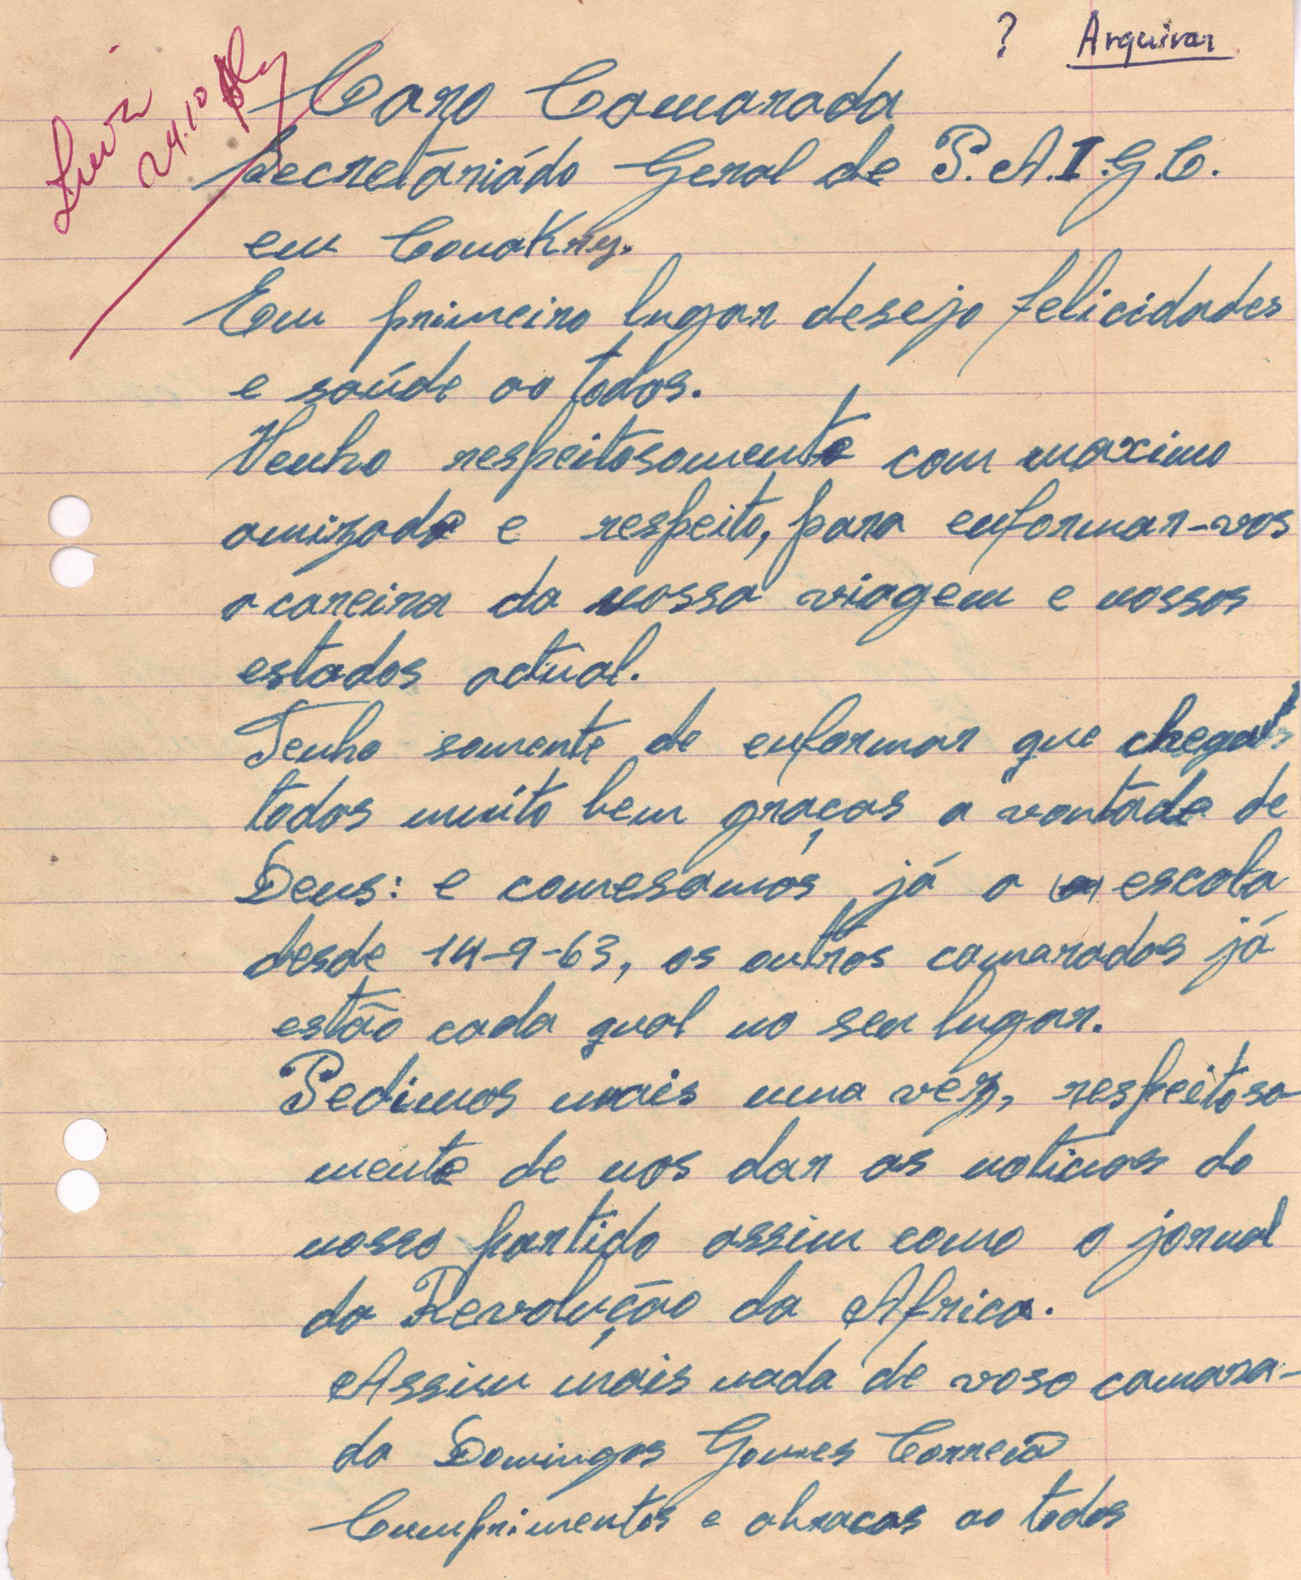 ? Arquivar
Luiz
24.10
Caro Camarada
Secretáriádo Geral de P.A.I.G.C.
em Conakry.
Em primeiro lugar desejo felicidades
e saúde ao todos.
Venho respeitosomente com maximo
amizade e respeito, para enformar-vos
a careira da nossa viagem e nossos
estados actual.
Tenho somente de enformar que
todos muito bem graças a vontade de
Deus: e comesamos já a escola
desde 14-9-63, os outros camaradas já
estão cada qual no seu lugar.
Pedimos mais uma vez, respeitosa-
mente de nos dar as noticias do
nosso partido assim como o jornal
da Revolução da Africa.
Assim mais nada de voso camara-
da Domingos Gomes Correia
Cumprimentos e abracos ao todos